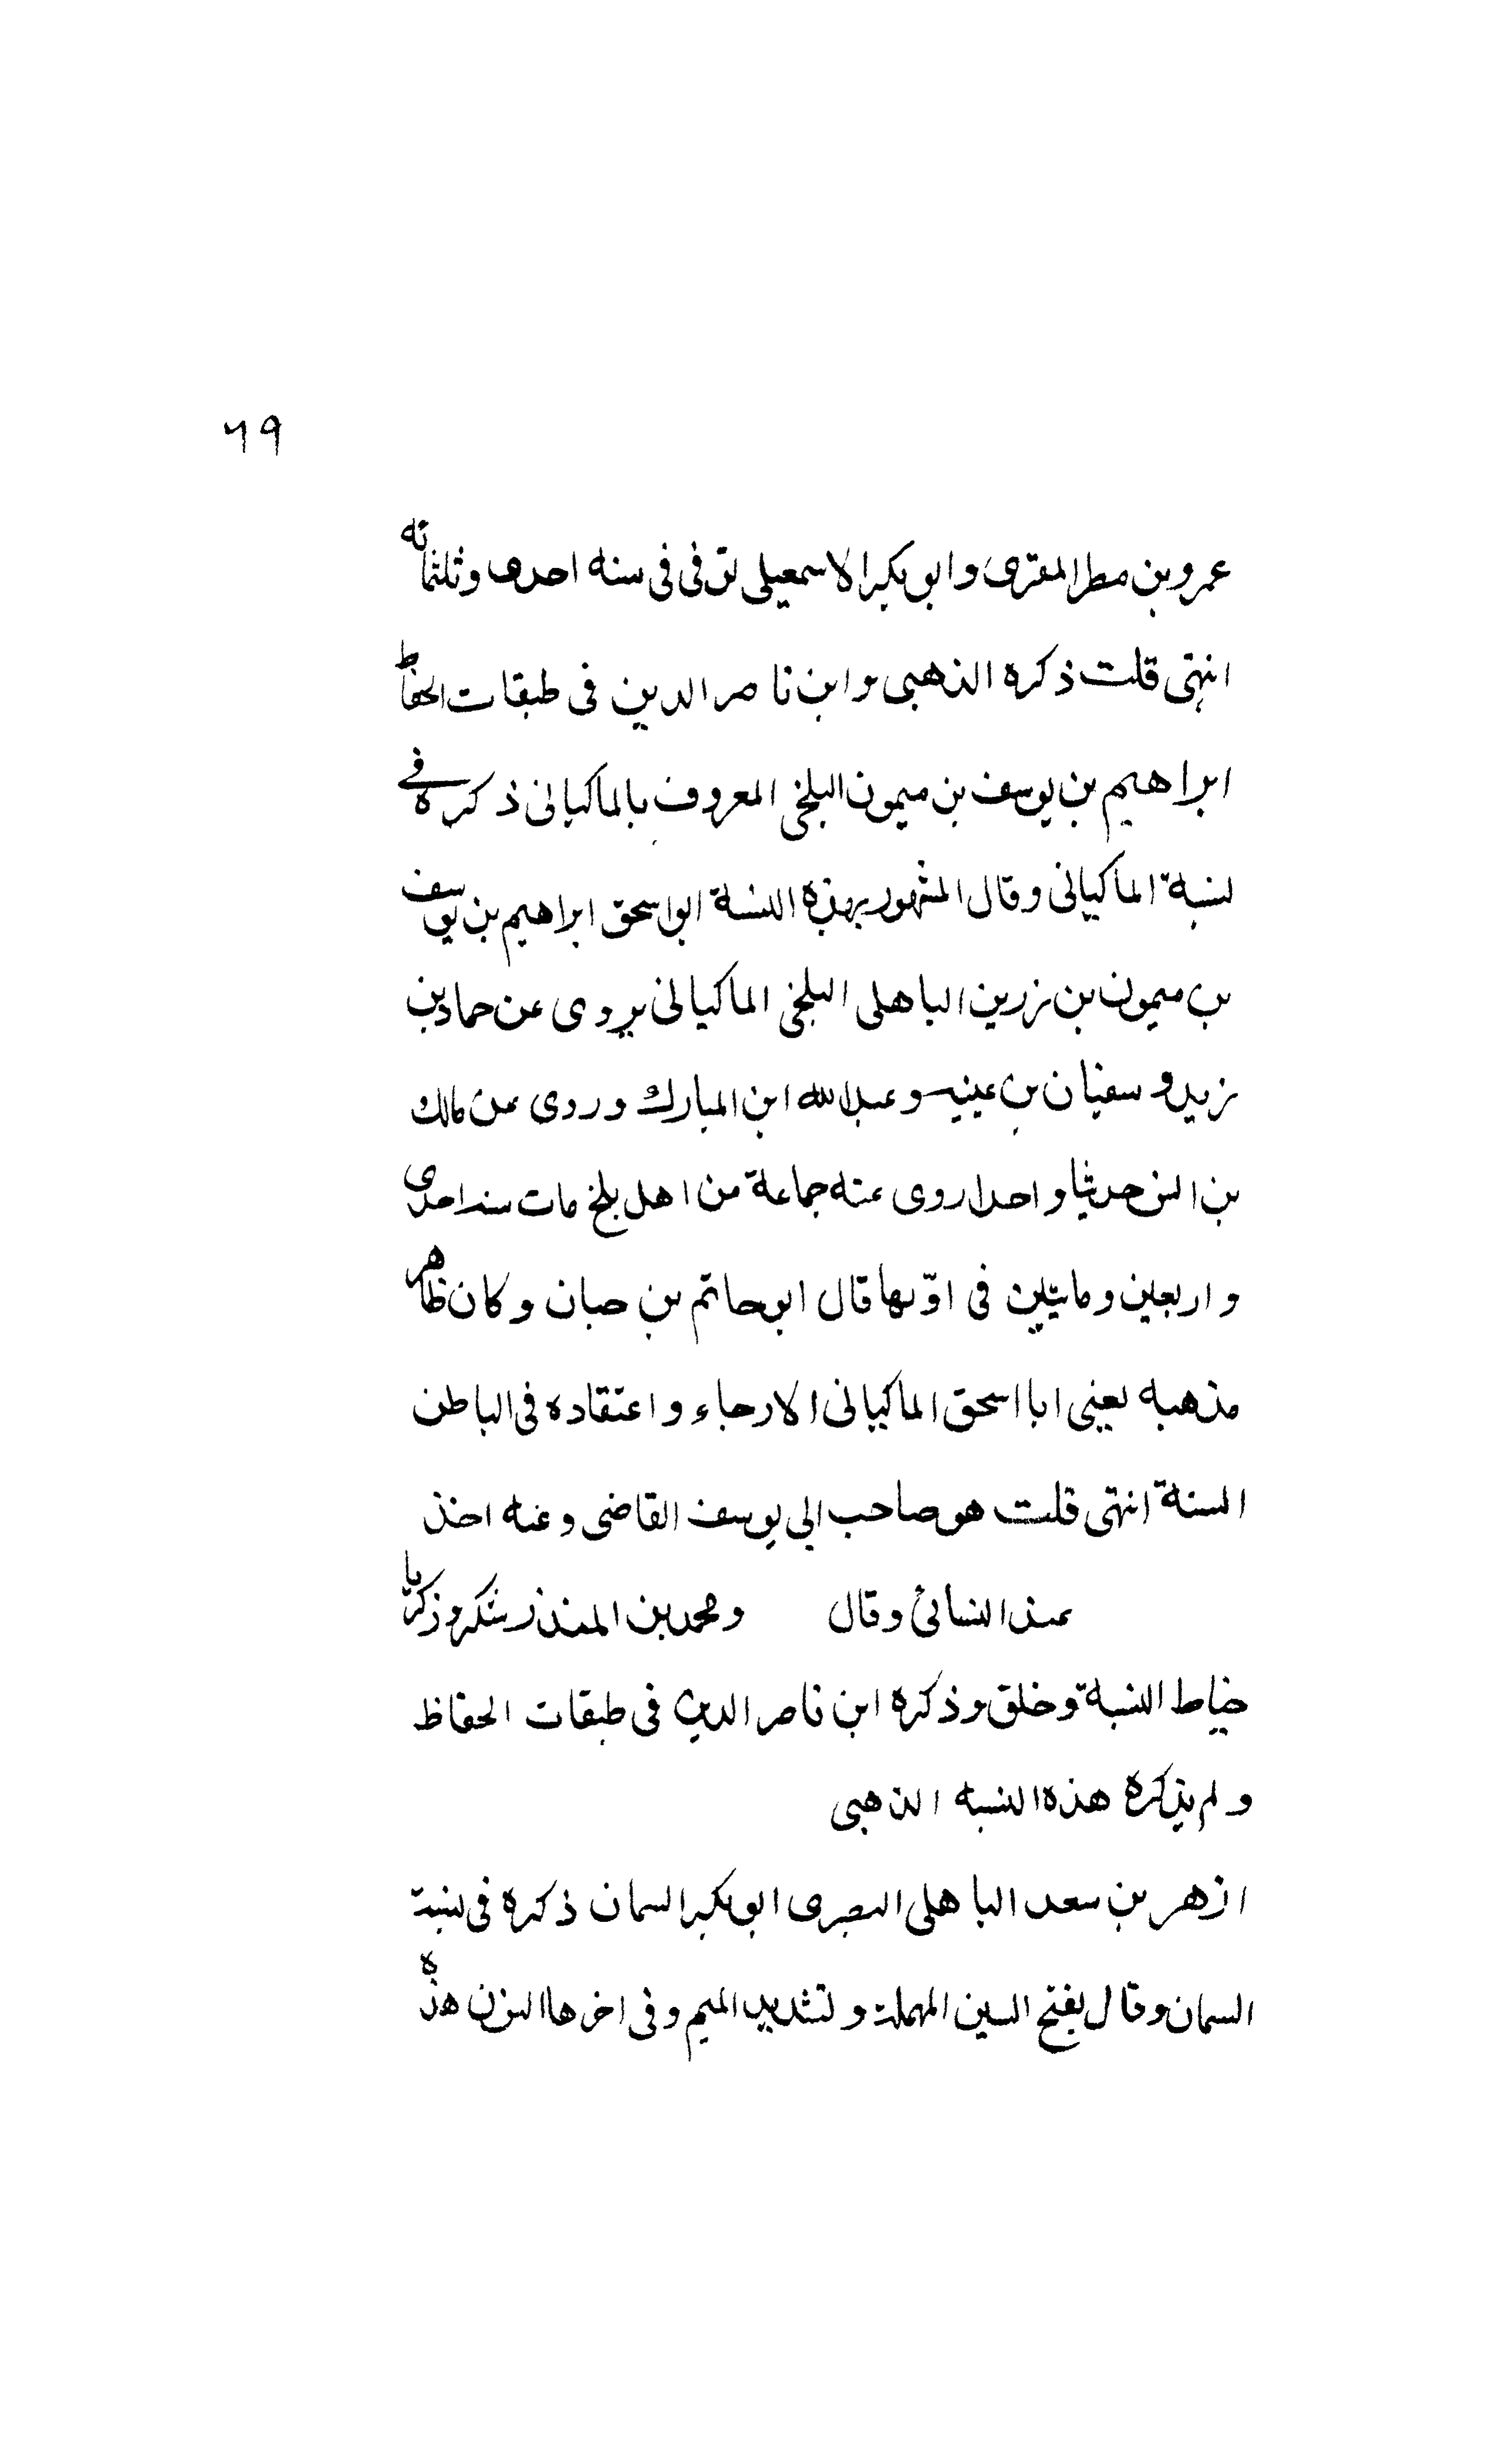 ٦٩
عمرو بن مطر المقرى وابو بكر الاسمعيلى توفى فى سنه احدى وثلثمائه
انتهى قلت ذكره الذهبى وابن ناصر الدين فى طبقات الحفاظ
ابراهيم بن يوسف بن ميمون البلخى المعروف بالماكيانى ذكره فى
نسبة الماكيانى وقال المشهور بهذه النسبة ابو اسحق ابراهيم بن يوسف
بن ميمون بن زرين الباهلى البلخى الماكيانى يروى عن حماد بن
زيد و سفيان بن عينيه وعبد الله ابن المبارك وروى عن مالك
بن انس حديثا واحدا روى عنه جماعة من اهل بلخ مات سنه احدى
و اربعين ومايتين فى اولها قال ابو حاتم بن حبان وكان ظاهر
مذهبه يعنى ابا اسحق الماكيانى الارجاء و اعتقاده فى الباطن
السنة انتهى قلت هو صاحب ابى يوسف القاضى وعنه اخذ
عنه النسائى وقال ومحمد بن المنذر شكر وزكريا
خياط السنة وخلق وذكره ابن ناصر الدين فى طبقات الحفاظ
و لم يذكره هذه النسبه الذهبى
ازهر بن سعد الباهلى البصرى ابو بكر السمان ذكره فى نسبة
السمان وقال بفتح السين المهملة و تشديد الميم وفى اخرها النون هذه